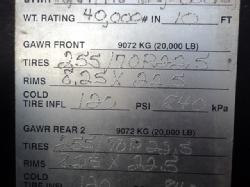 WT. RATING 40,000# IN 10 FT
GAWR FRONT 9072 KG (20,000 LB)
TIRES 255/70R22.5
RIMS 8.25 X 22.5
COLD
TIRE INFL 120 PSI 840 kPa
GAWR REAR 2 9072 KG (20,000 LB)
TIRES 255/70R22.5
RIMS 8.25 X 22.5
COLD